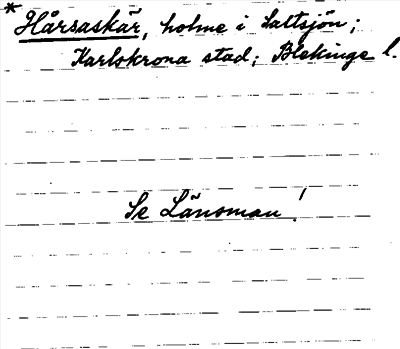 * Hårsaskär, holme i Saltsjön;
Karlskrona stad; Blekinge l.
Se Länsman!